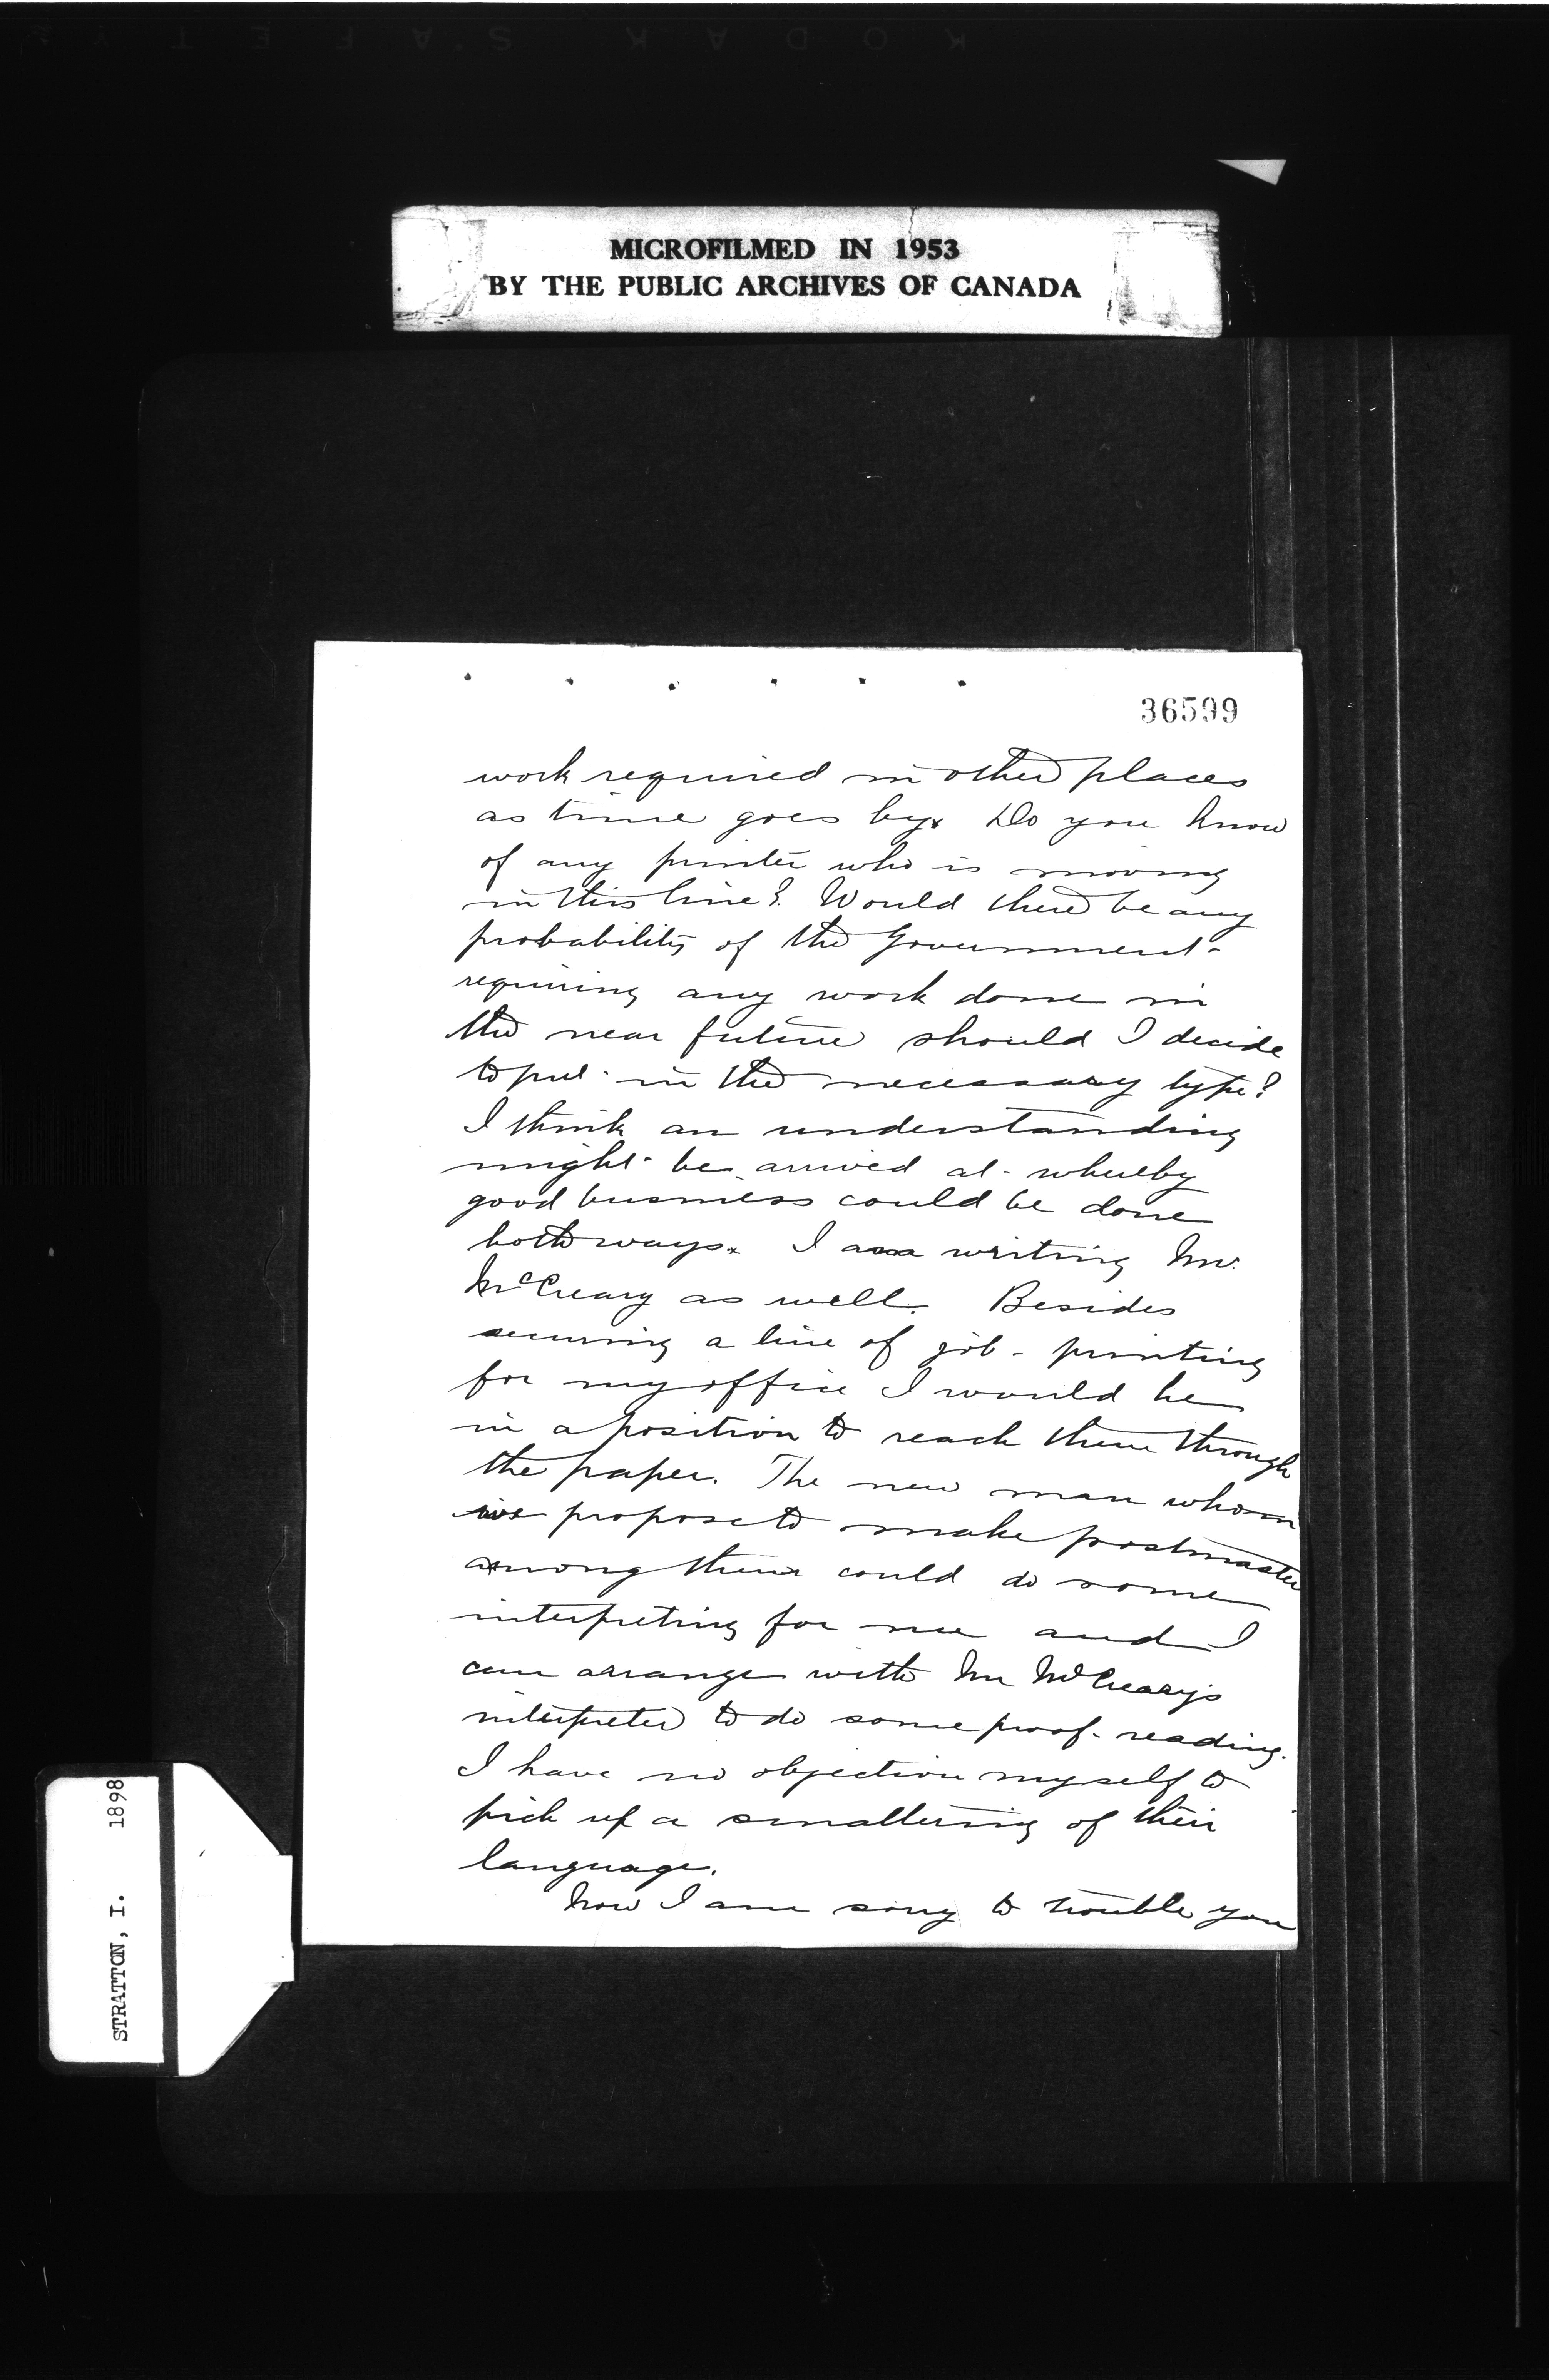 KODAK SAFETY
MICROFILMED IN 1953
BY THE PUBLIC ARCHIVES OF CANADA
36599
work required in other places
as time goes by. Do you know
of any printer who is moving
in this line? Would there be any
probability of the Government
requiring any work done in
the near future should I decide
to put in the necessary type?
I think an understanding
might be arrived at whereby
good business could be done
both ways. I am writing Mr.
McCreary as well. Besides
securing a line of job-printing
for my office I would be
in a position to reach them through
the paper. The new man whom
we propose to make postmaster
among them could do some
interpreting for me and I
can arrange with Mr McCreary's
interpreter to do some proof-reading.
I have no objection myself to
pick up a smattering of their
language.
Now I am sorry to trouble you
STRATTON, I. 1898